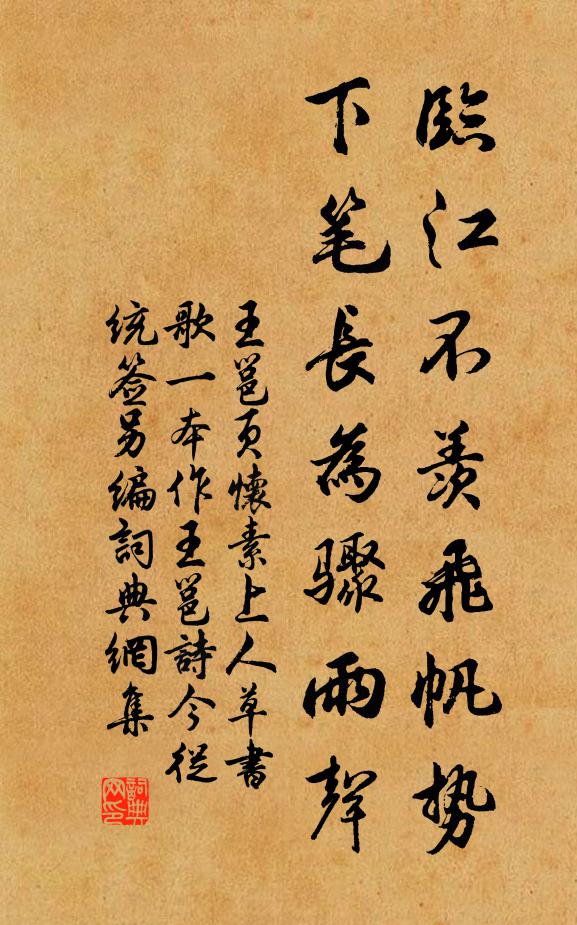 臨江不羨飛帆势
下笔長為驟雨聲
王邕页懷素上人草書
歌一本作王邕詩今從
統签另编詞典網集
詞典网印